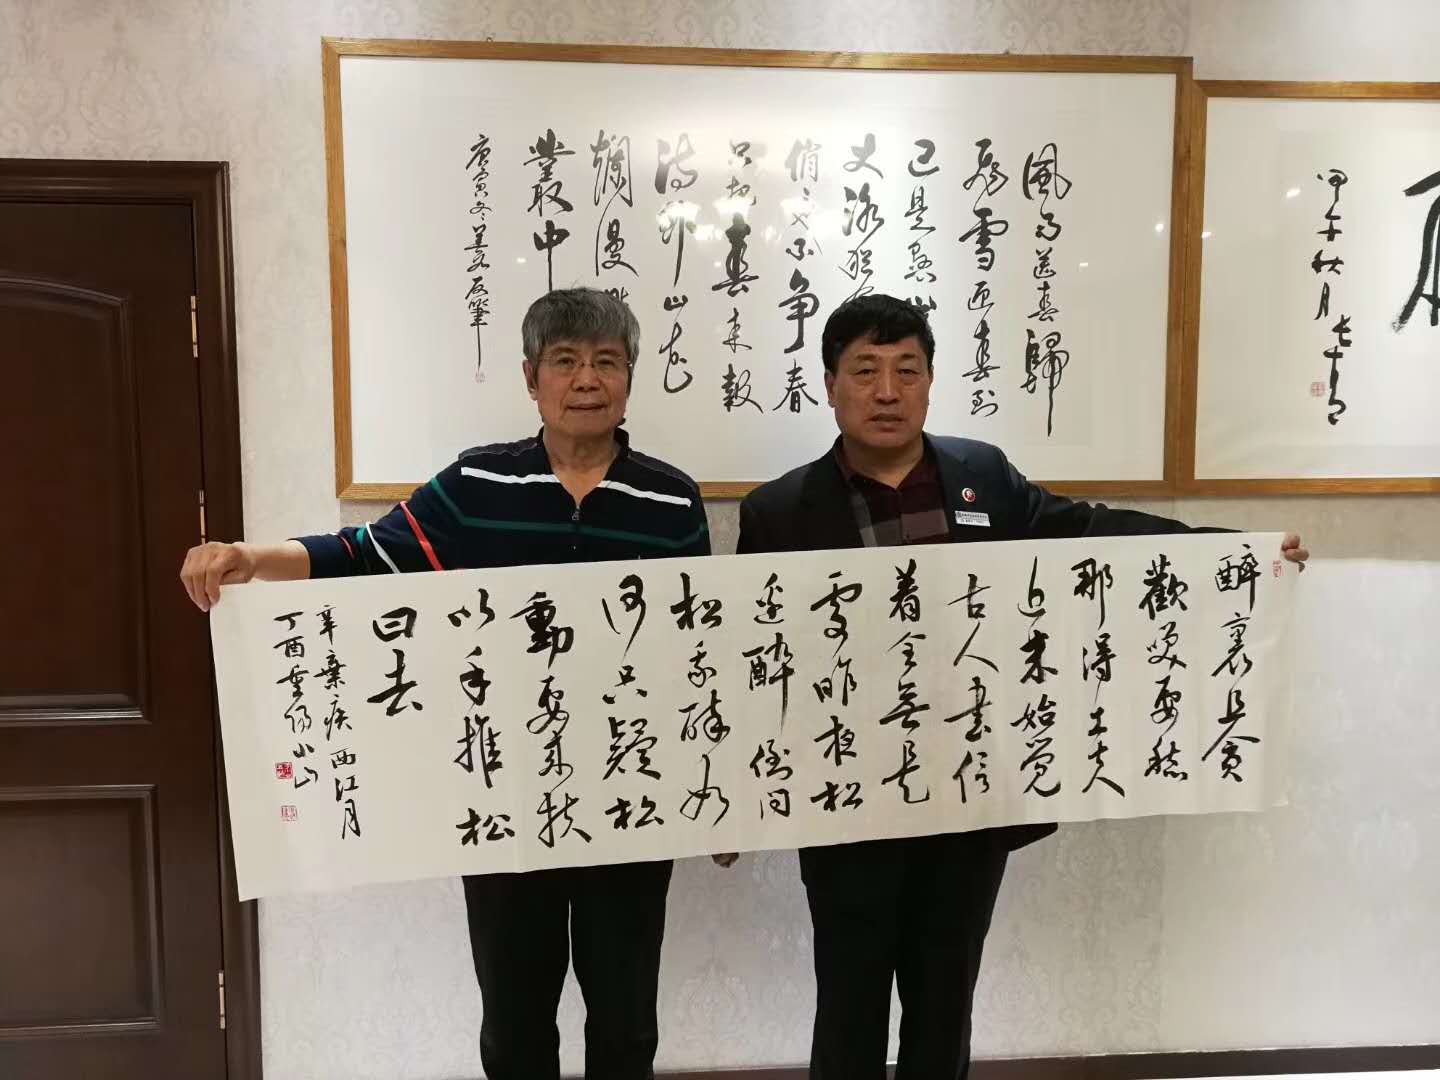 風雨送春歸
飛雪迎春到
已是懸
丈冰犹
俏不争春
只把春来報
待到山花
爛漫
叢中
庚寅冬
甲午秋月
醉裏且貪
歡笑要愁
那得工夫
近来始覺
古人書信
着全無是
處昨夜松
邊醉倒問
松我醉如
何只疑松
動要来扶
以手推松
曰去
辛棄疾西江月
丁酉重陽小山